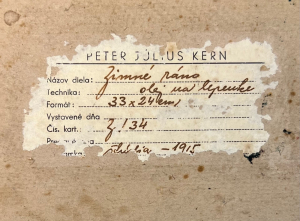 PETER JÚLIUS KERN
Názov diela: Zimné ráno
Technika: olej na lepenke
Formát: 33 x 24 cm
Vystavené dňa
Čís. kart.: Z! 34
štúdia - 1915